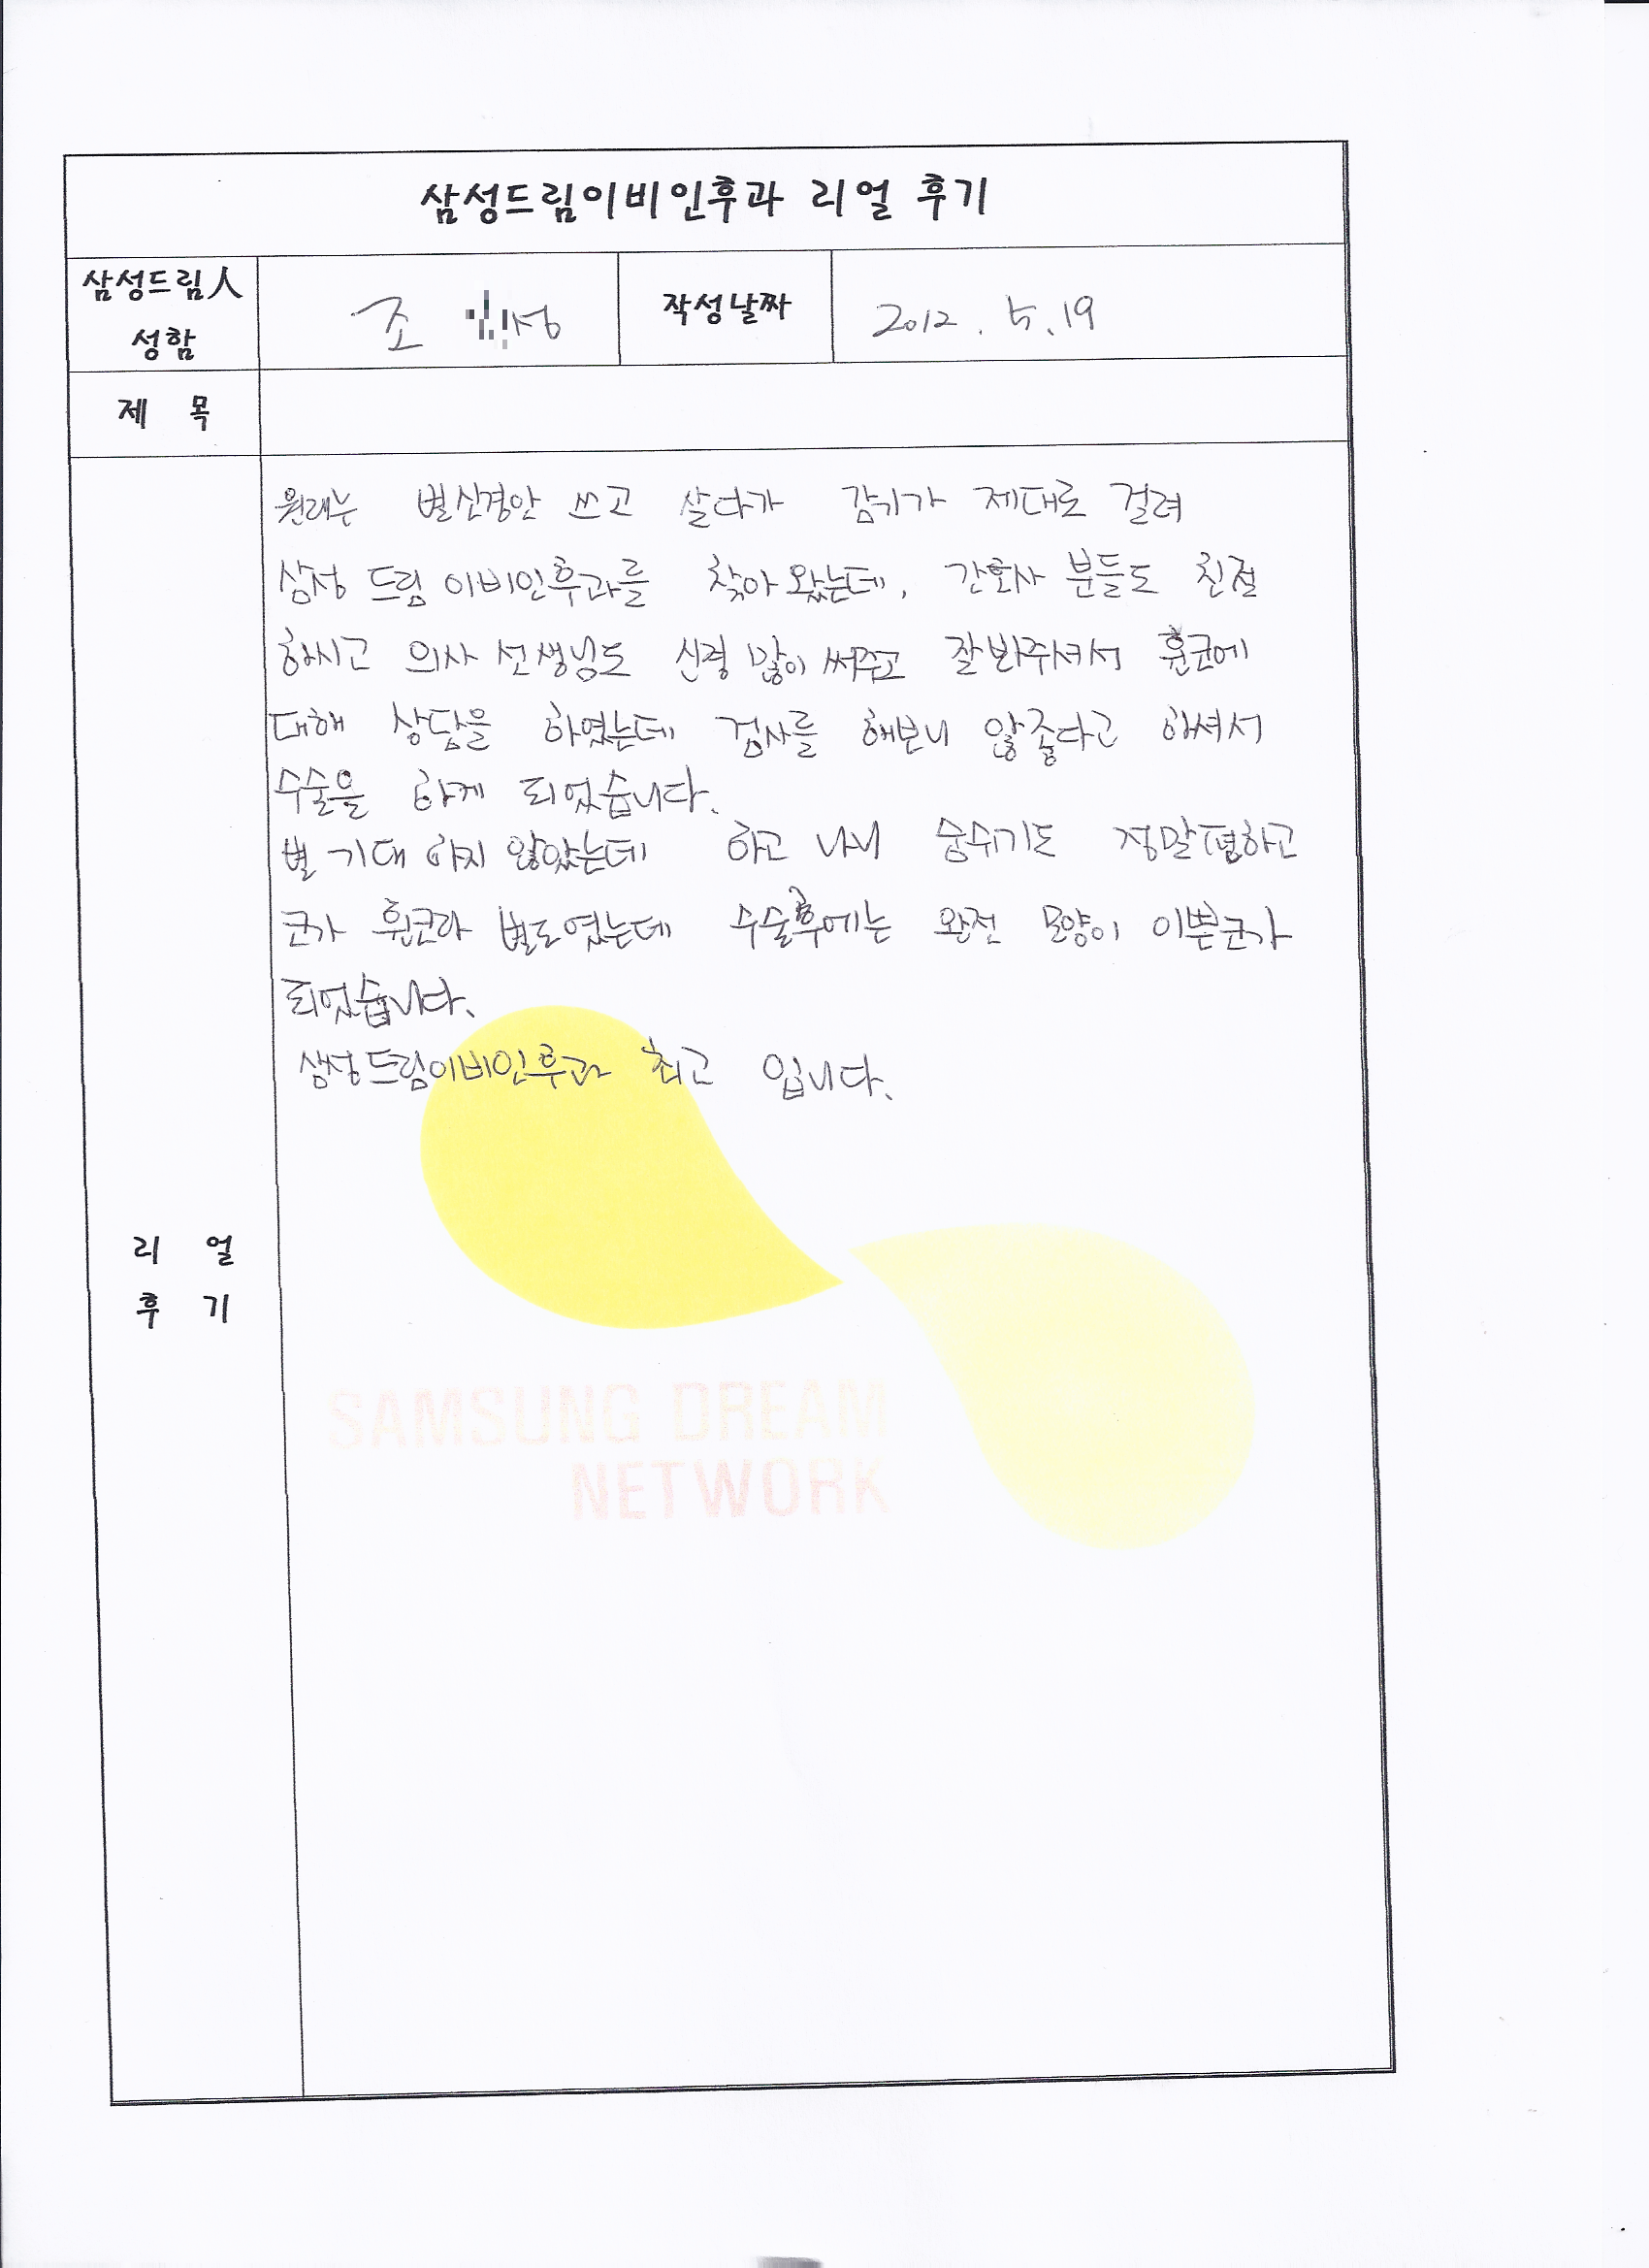 삼성드림이비인후과 리얼 후기
삼성드림人 성함 조 성 작성날짜 2012. 5. 19
제 목
원래는 별신경안 쓰고 살다가 감기가 제대로 걸려
삼성 드림 이비인후과를 찾아왔는데, 간호사 분들도 친절
하시고 의사 선생님도 신경 많이 써주고 잘봐주셔서 휜코에
대해 상담을 하였는데 검사를 해보니 않좋다고 하셔서
수술을 하게 되었습니다.
별 기대 하지 않았는데 하고 나니 숨쉬기도 정말 편하고
코가 휜코라 별로였는데 수술후에는 완전 모양이 이쁜코가
되었습니다.
삼성드림이비인후과 최고 입니다.
리 얼
후 기
SAMSUNG DREAM
NETWORK